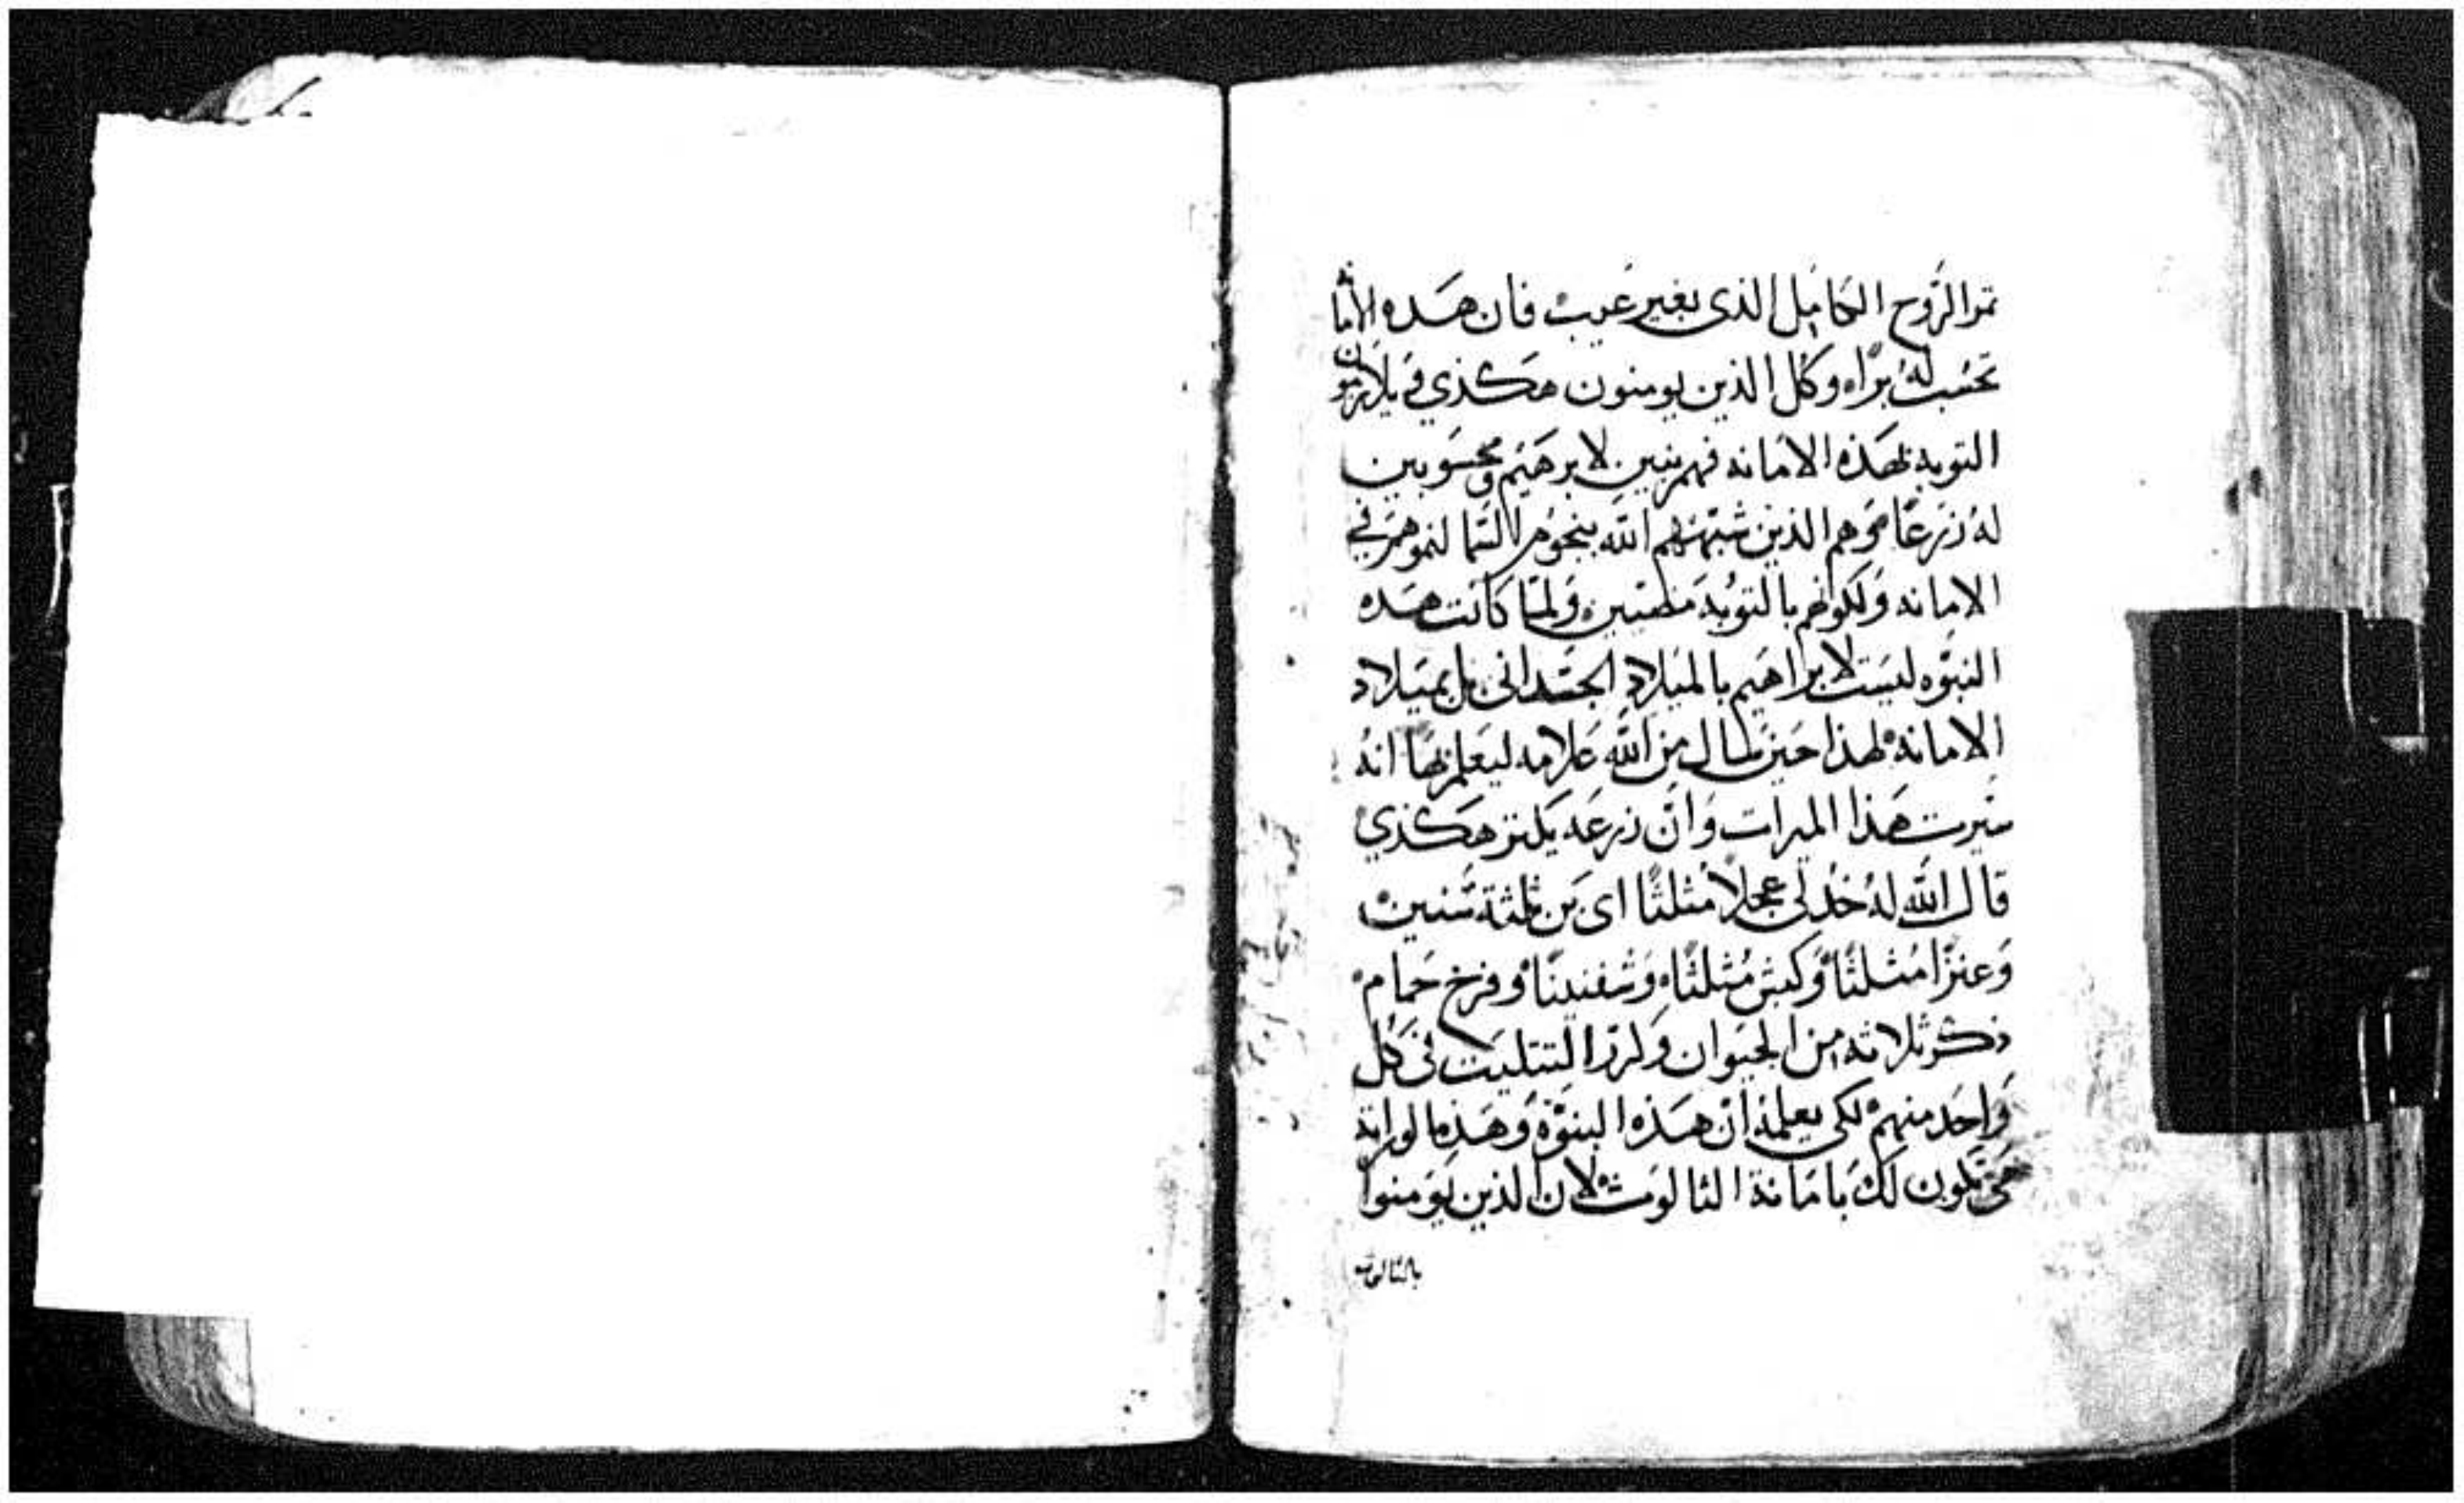 نمو الروح الكامل الذى بغير عيب فان هده الأما
تحسب له براه وكل الذين يومنون هكذي في يلازمون
التوبه لهذه الامانه فهم بنين لابرهيم ومحسوبين
له زرعا وهم الذين شبههم الله بنجوم السما لنموهم في
الامانه ولكونهم بالتوبه مضيين ولما كانت هده
النبوه ليست لابراهيم بالميلاد الجسدانى بل بميلاد
الامانه لهذا حين سال من الله علامه ليعلم بها انه
سيرت هذا الميرات وان زرعه يكتر هكذي
قال الله له خد لي عجلا مثلثا اى من ثلثة سنين
وعنزا مثلثا وكبش مثلثا وشفنينا وفرخ حمام
ذكر ثلاثه من الحيوان وكرر التتليت فى كل
واحد منهم لكى يعلمه ان هذه البنوة وهذه الوراثه
هى تكون لك بامانة الثالوث لان الذين يومنوا
بالثالوت